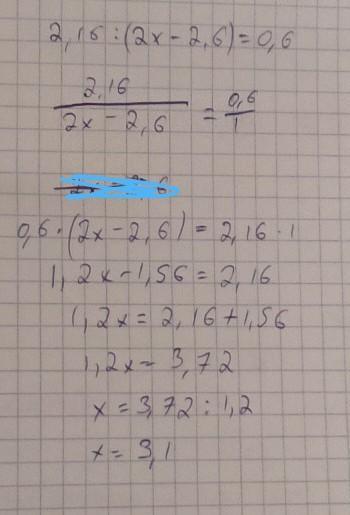 2,16 : (2x - 2,6) = 0,6
2,16 / 2x - 2,6 = 0,6 / 1
0,6 · (2x - 2,6) = 2,16 · 1
1,2x - 1,56 = 2,16
1,2x = 2,16 + 1,56
1,2x = 3,72
x = 3,72 : 1,2
x = 3,1